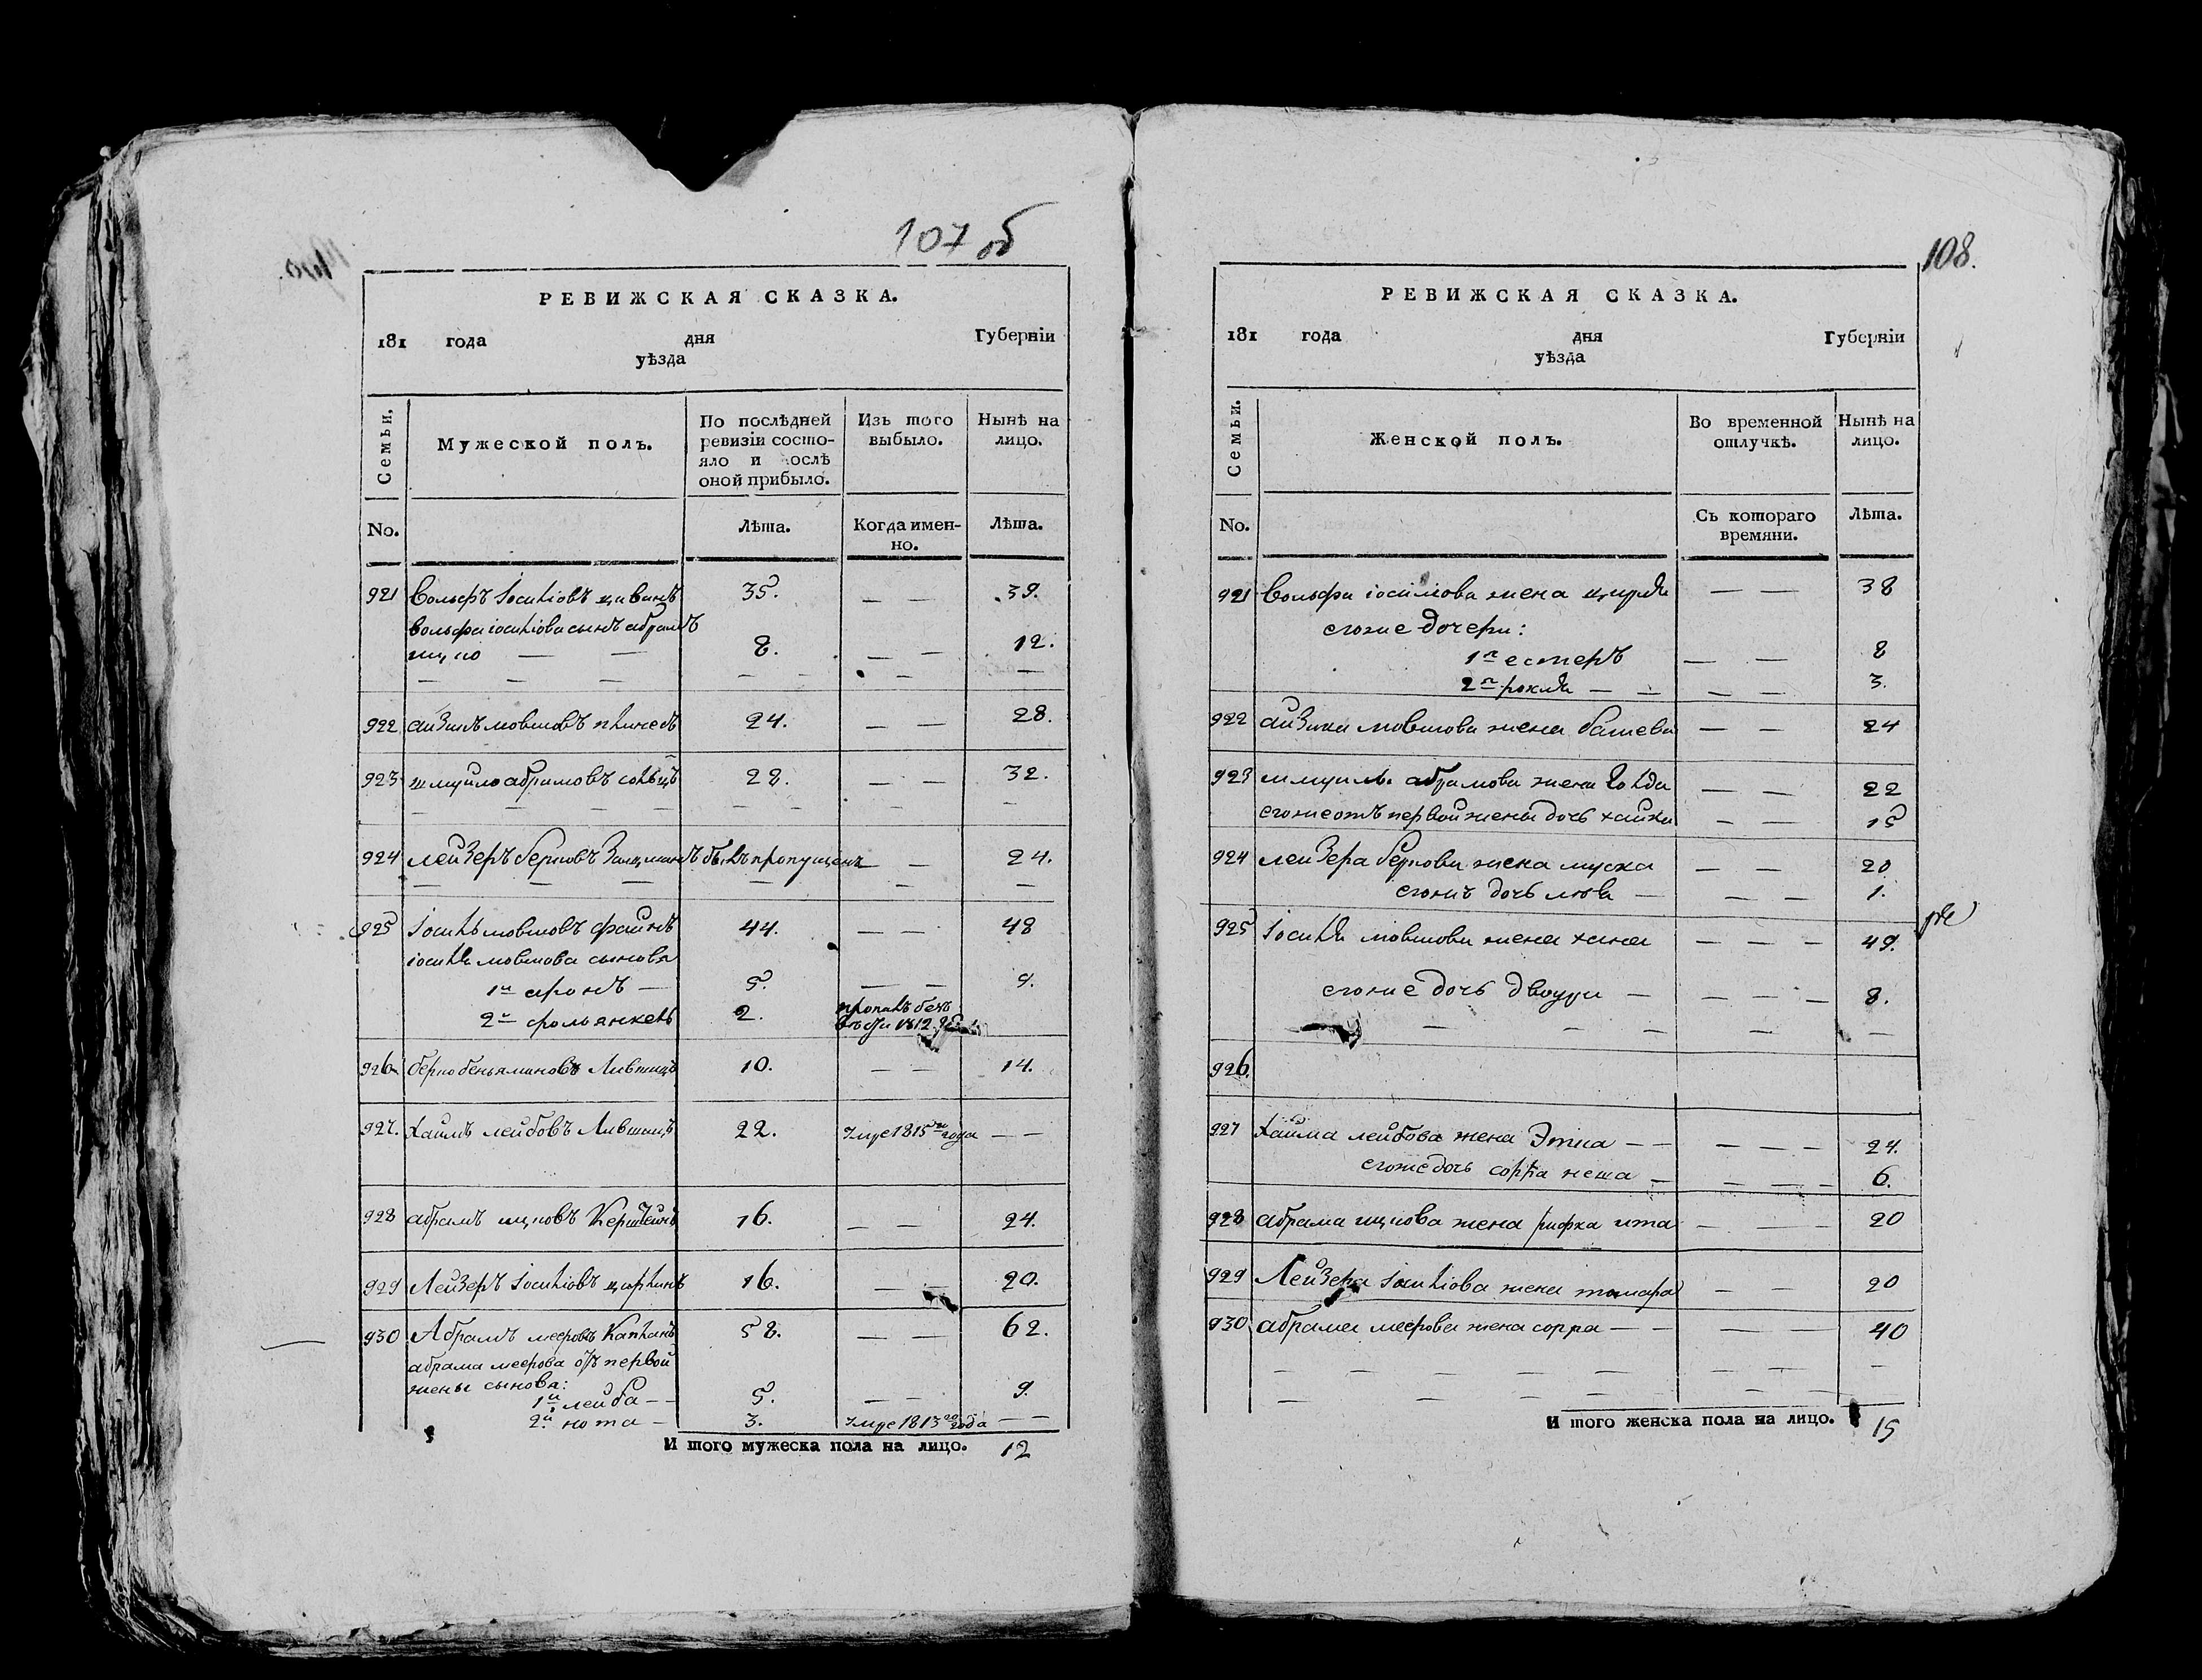 107 об
РЕВИЖСКАЯ СКАЗКА.
181 года дня Губерніи
уѣзда
Семьи.
Мужеской полъ.
По послѣдней
ревизіи состо-
яло и послѣ
оной прибыло.
Изъ того
выбыло.
Нынѣ на
лицо.
No.
Лѣта.
Когда имен-
но.
Лѣта.
921 Вольфъ Іосилiовъ 35. — — 39.
Вольфа іосиліова сынъ абрамъ
ицко — — 8. — — 12.
922 айзикъ мовшовъ 24. — — 28.
923 шмуйло абрамовъ 28. — — 32.
924 лейзеръ берковъ былъ пропущенъ — — 24.
925 Іосиль мовшовъ файнъ 44. — — 48
іосиля мовшова сыновья
1й аронъ — 5. — — 9.
2й 2. пропалъ безъ
вѣсти 1812
926 берко беньяминовъ Лившицъ 10. — — 14.
927. Хаимъ лейбовъ Лившицъ 22. умре 1815го года — —
928 абрамъ ицковъ 16. — — 24.
929 Лейзеръ Іосиліовъ 16. — — 20.
930 Абрамъ мееровъ Капланъ 58. — — 62.
абрама меерова отъ первой
жены сыновья:
1й лейба — — 5. — — 9.
2й нота — 3. умре 1813го года — —
И того мужеска пола на лицо. 12
108.
РЕВИЖСКАЯ СКАЗКА.
181 года дня Губерніи
уѣзда
Семьи.
Женской полъ.
Во временной
отлучкѣ.
Нынѣ на
лицо.
No.
Съ котораго
времяни.
Лѣта.
921 Вольфа іосиліова жена цирля — — 38
егоже дочери:
1я естеръ — — 8
2я рохля — — — — 3.
922 айзика мовшова жена башева — — 24
923 шмуйлы абрамова жена голда — — 22
егоже отъ первой жены дочь хайка — — 15
924 лейзера беркова жена муска — — 20
дочь люба — — — 1.
925 Іосиля мовшова жена хана — — — 49.
егоже дочь двойра — — — — 8.
926.
927 Хаима лейбова жена Этка — — — — — 24.
егоже дочь сорра неша — — — — 6.
928 абрама ицкова жена рифка ита — — — 20
929 Лейзера Іосиліова жена тамара — — 20
930 абрама меерова жена сорра — — — — 40
И того женска пола на лицо. 15